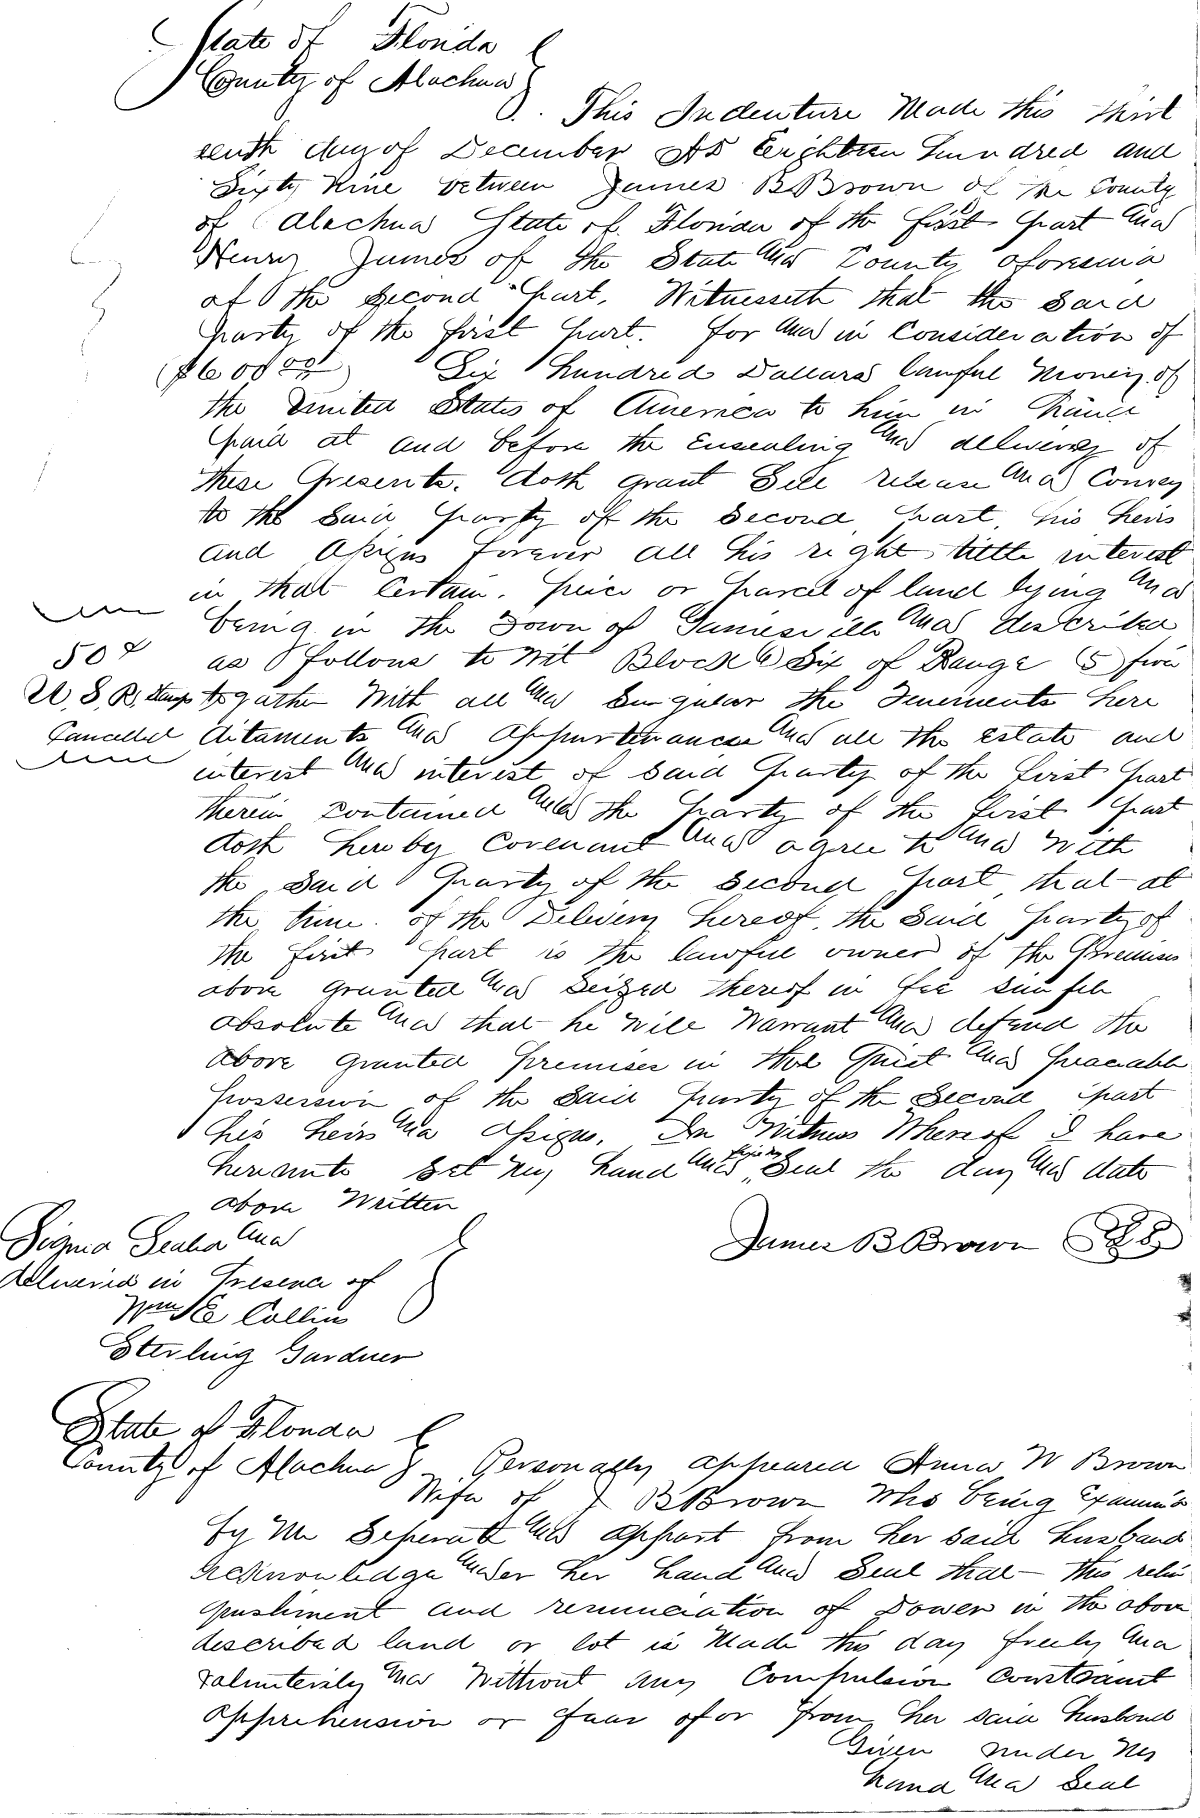 State of Florida
County of Alachua
This Indenture Made this thirt
eenth day of December AD Eighteen hundred and
Sixty Nine between James B Brown of the County
of Alachua State of Florida of the first part and
Henry James of the State and County aforesaid
of the second part, Witnesseth that the said
party of the first part. for and in Consideration of
($600 00) Six hundred Dollars lawful money of
the United States of America to him in hand
paid at and before the Ensealing and delivery of
these Presents. doth grant Sell release and Convey
to the said party of the second part, his heirs
and Assigns forever all his right tittle interest
in that Certain. peice or parcel of land lying and
being in the Town of Gainesville and described
as follows to wit Block 6 Six of Range (5) five
50 ¢
U. S. R. Stamps
Cancelled
togather With all and Singular the Tenements here
ditaments and appurtenances and all the estate and
interest and interest of said party of the first part
therein contained and the party of the first part
doth hereby Covenant and agree to and With
the said party of the second part that at
the time. of the Delivery hereof, the said party of
the first part is the lawful owner of the Premises
above granted and Seized thereof in fee simple
absolute and that he Will Warrant and defend the
above granted premises in the Quiet and peaceable
possession of the said party of the Second part
his heirs and assigns. In Witness Whereof I have
hereunto set my hand and Seal the day and date
above Written
James B Brown
Signed Sealed and
delivered in Presence of
Wm E Collins
Sterling Gardner
State of Florida
County of Alachua Personally appeared Anna W Brown
Wife of J B Brown Who being Examined
by Me Seperate and appart from her said husband
acknowledge under her hand and Seal that this relin
quishment and renunciation of Dower in the above
described land or lot is Made this day freely and
valunterily and Without any Compulsion Constraint
apprehension or fear of or from her said husband
Given under My
hand and Seal